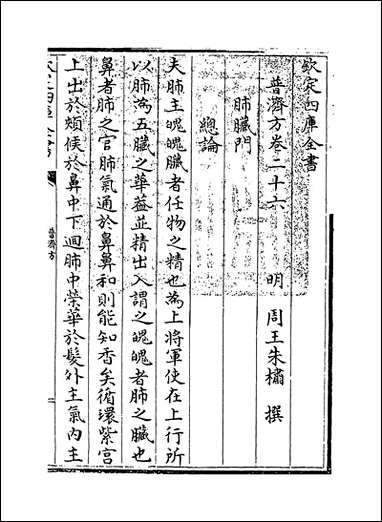 欽定四庫全書
普濟方卷二十六
明　周王朱橚　撰
肺臟門
總論
夫肺主魄魄臟者任物之精也為上將軍使在上行所
以肺為五臟之華葢並精出入謂之魄魄者肺之臟也
鼻者肺之官肺氣通於鼻鼻和則能知香矣循環紫宮
上出於頰候於鼻中下迴肺中榮華於髮外主氣内主
普濟方